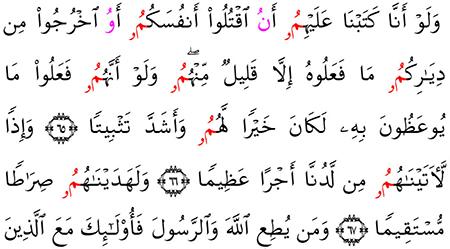 وَلَوْ أَنَّا كَتَبْنَا عَلَيْهِمُۥ أَنُ ٱقْتُلُوٓاْ أَنفُسَكُمُۥٓ أَوُ ٱخْرُجُواْ مِن
دِيَٰرِكُمُۥ مَا فَعَلُوهُ إِلَّا قَلِيلٌ مِّنْهُمُۥۖ وَلَوْ أَنَّهُمُۥ فَعَلُواْ مَا
يُوعَظُونَ بِهِۦ لَكَانَ خَيْرًا لَّهُمُۥ وَأَشَدَّ تَثْبِيتًا ٦٥ وَإِذًا
لَّأٓتَيْنَٰهُمُۥ مِن لَّدُنَّا أَجْرًا عَظِيمًا ٦٦ وَلَهَدَيْنَٰهُمُۥ صِرَٰطًا
مُّسْتَقِيمًا ٦٧ وَمَن يُطِعِ اللَّهَ وَالرَّسُولَ فَأُوْلَٰٓئِكَ مَعَ الَّذِينَ